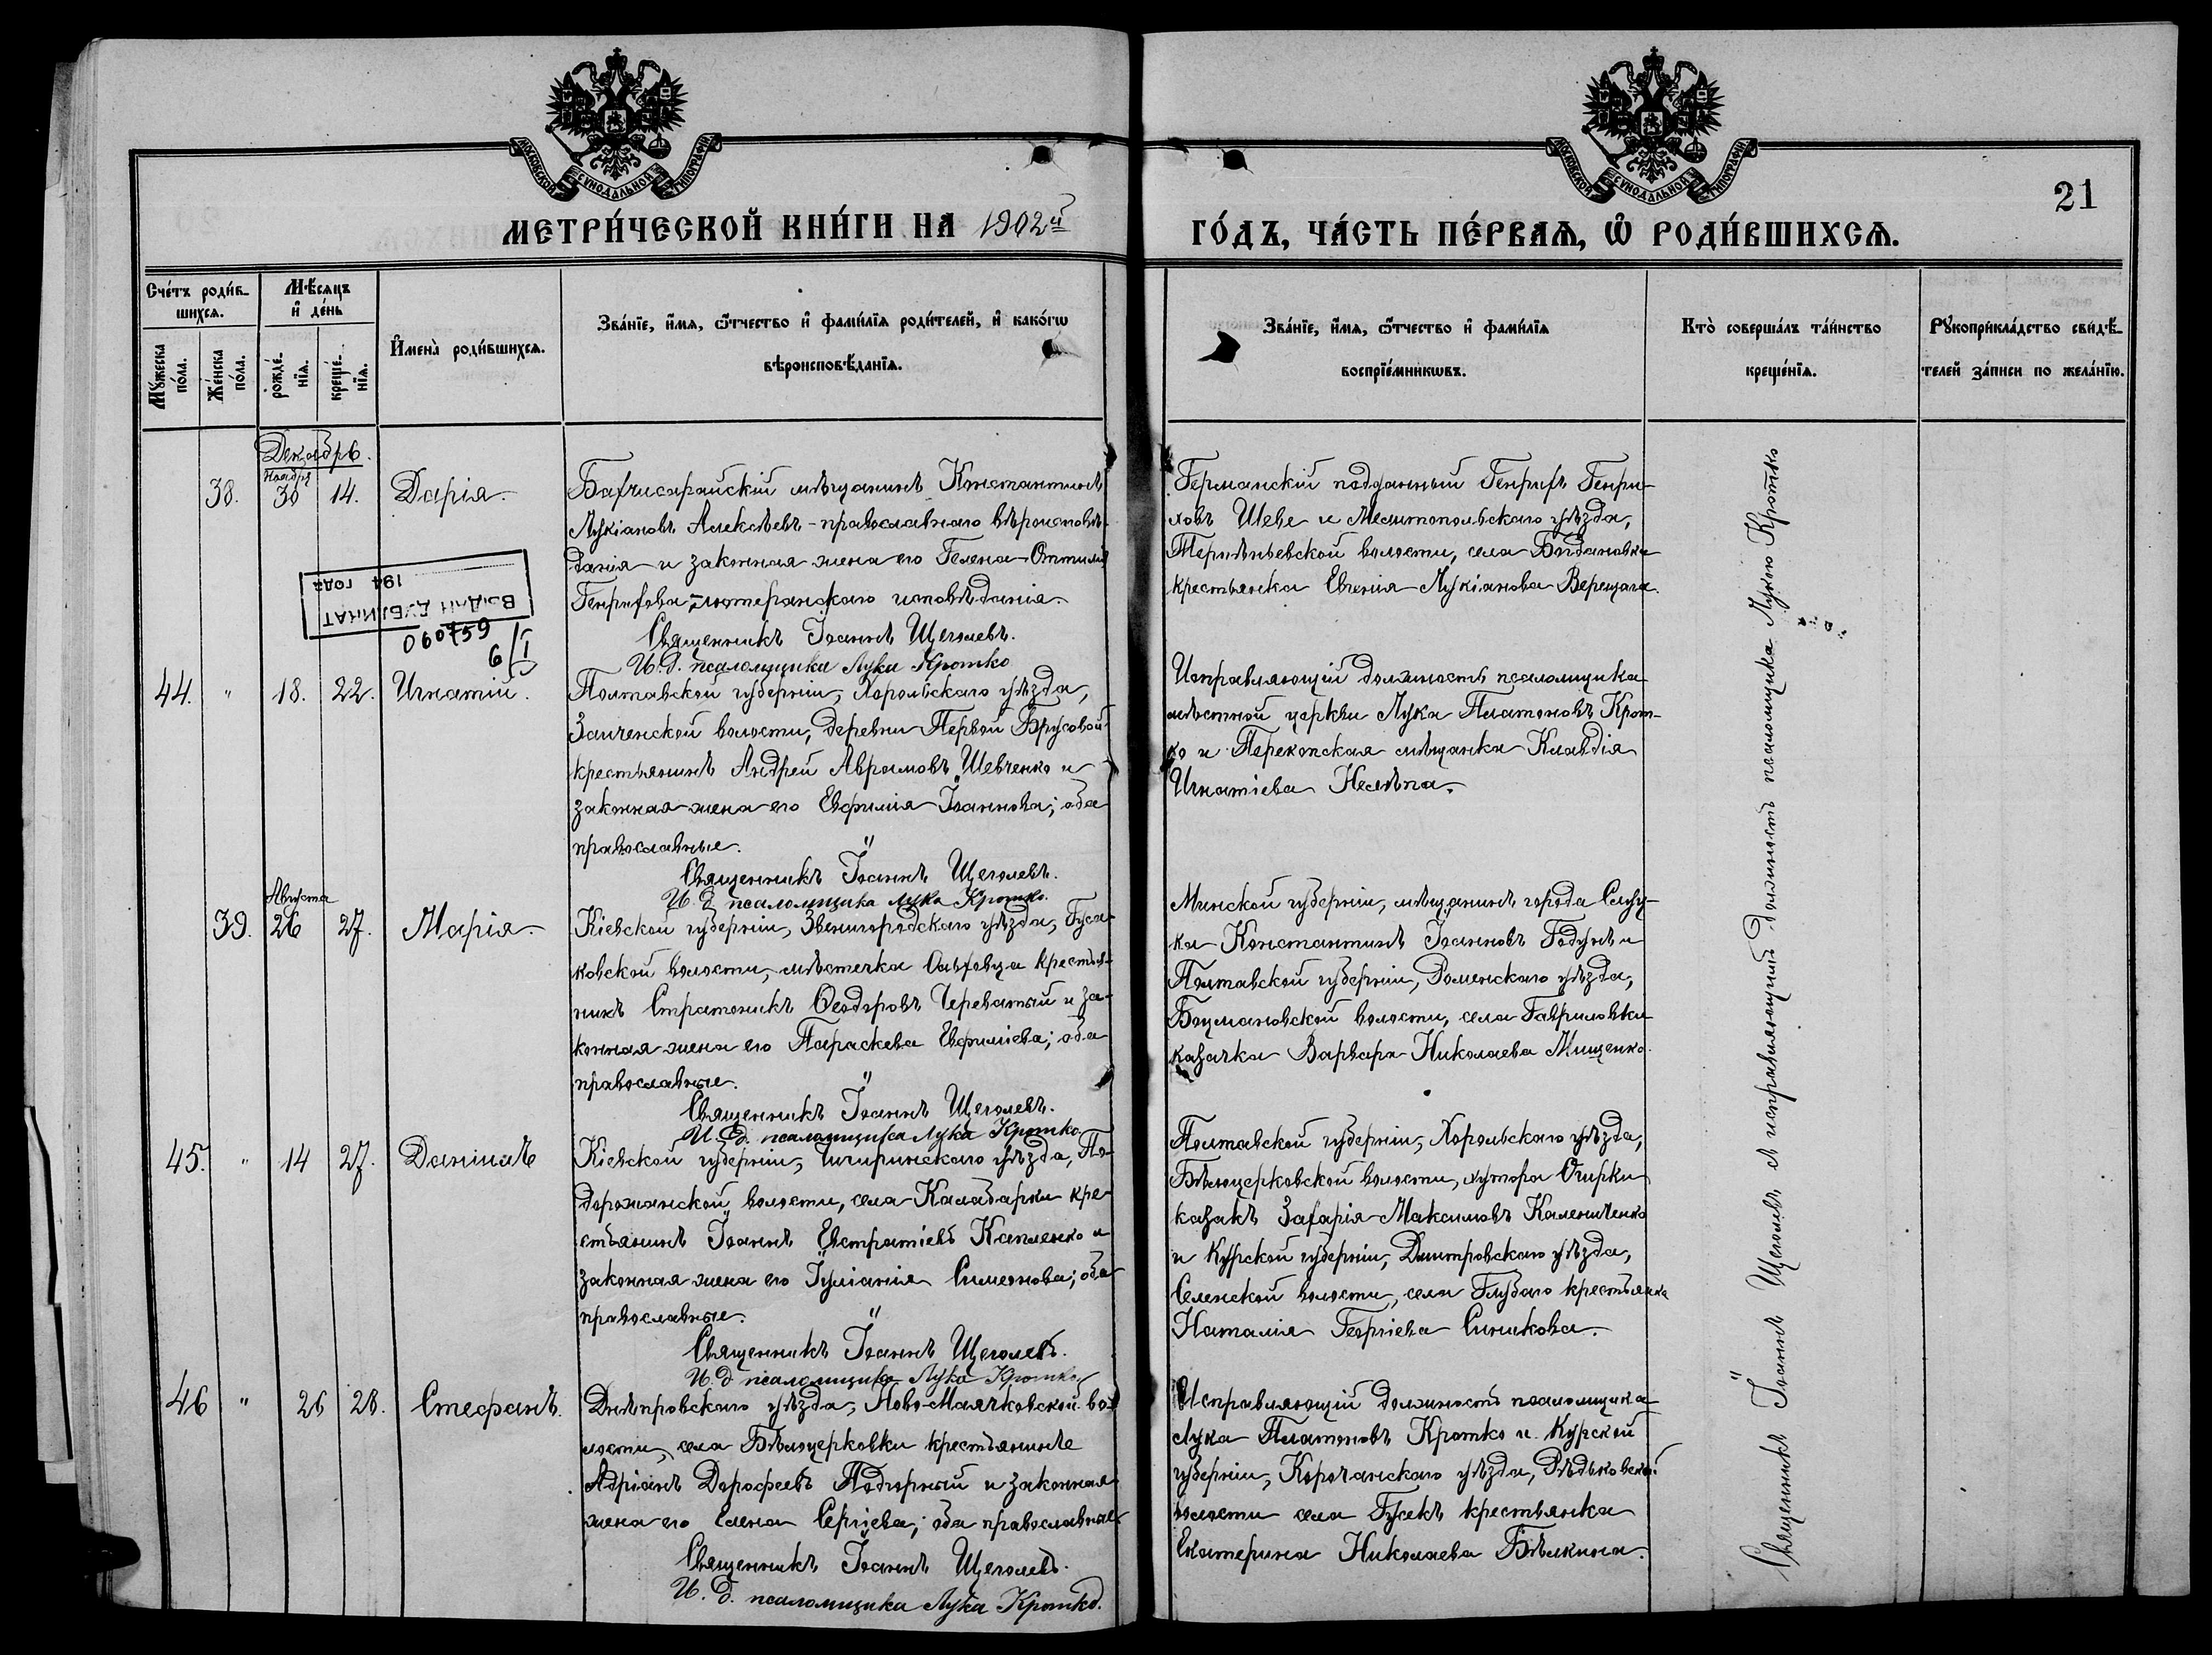 МОСКОВСКОЙ СУНОДАЛЬНОЙ ТИПОГРАФІИ
МОСКОВСКОЙ СУНОДАЛЬНОЙ ТИПОГРАФІИ
21
МЕТРИ́ЧЕСКОЙ КНИ́ГИ НА 1902й
ГО́ДЪ, ЧА́СТЬ ПЕ́РВАѦ, Ѡ РОДИ́ВШИХСѦ.
Сче́тъ роди́в-
шихсѧ.
Мѣ́сѧцъ
и де́нь
Мꙋ́жеска по́ла.
Же́нска по́ла.
рожде́нїѧ.
креще́нїѧ.
Имена̀ роди́вшихсѧ.
Зва́нїе, и́мѧ, ѻ҆́тчество и҆ фами́лїѧ роди́телей, и҆ како́гѡ
вѣроисповѣ́данїѧ.
Зва́нїе, и́мѧ, ѻ҆́тчество и҆ фами́лїѧ
воспрїе́мникѡвъ.
Кто̀ соверша́лъ та́инство
креще́нїѧ.
Рꙋкоприкла́дство свидѣ́-
телей за́писи по жела́нїю.
Декабрь.
38.
Ноября
30
14.
Дарія
Бахчисарайскій мѣщанинъ Константинъ
Лукіановъ Алексѣевъ - православнаго вѣроисповѣ-
данія и законная жена его Гелена-Оттилія
Генрихова, - лютеранскаго исповѣданія.
Священникъ Іоаннъ Щеголевъ.
И. д. псаломщика Лука Кротко
Германскій подданный Генрихъ Генри-
ховъ Шеве и Мелитопольскаго уѣзда,
Терпѣньевской волости, села Богдановки
крестьянка Евгенія Лукіанова Верещага.
ВЫДАН ДУБЛИКАТ
194 года
060759
6/I
44.
"
18.
22.
Игнатій.
Полтавской губерніи, Хорольскаго уѣзда,
Заиченской волости, деревни Первой Брусовой
крестьянинъ Андрей Аврамовъ Шевченко и
законная жена его Евфимія Іоаннова; оба
православные.
Священникъ Іоаннъ Щеголевъ.
И. д. псаломщика Лука Кротко.
Исправляющій должность псаломщика
мѣстной церкви Лука Платоновъ Крот-
ко и Перекопская мѣщанка Клавдія
Игнатіева Нелѣпа.
39.
Августа
26
27.
Марія
Кіевской губерніи, Звенигородскаго уѣзда, Гуса-
ковской волости, мѣстечка Ольховца крестья-
нинъ Стратоникъ Ѳеодоровъ Череватый и за-
конная жена его Параскева Евфиміева; оба
православные.
Священникъ Іоаннъ Щеголевъ.
И. д. псаломщика Лука Кротко.
Минской губерніи, мѣщанинъ города Слуц-
ка Константинъ Іоанновъ Годунъ и
Полтавской губерніи, Роменскаго уѣзда,
Боцмановской волости, села Гавриловки
казачка Варвара Николаева Мищенко.
45.
"
14
27.
Даніилъ
Кіевской губерніи, Чигиринскаго уѣзда, По-
дорожанской волости, села Калабарки кре-
стьянинъ Іоаннъ Евстратіевъ Капленко и
законная жена его Іуліанія Симеонова; оба
православные.
Священникъ Іоаннъ Щеголевъ.
И. д. псаломщика Лука Кротко
Полтавской губерніи, Хорольскаго уѣзда,
Бѣлоцерковской волости, хутора Огирки
казакъ Захарія Максимовъ Калениченко
и Курской губерніи, Дмитровскаго уѣзда,
Селенской волости, села Глубаго крестьянка
Наталія Георгіева Синикова.
46
"
26
28.
Стефанъ.
Днѣпровскаго уѣзда, Ново-Маячковской во-
лости, села Бѣлоцерковки крестьянинъ
Адріанъ Дорофеевъ Подгорный и законная
жена его Елена Сергіева; оба православные
Священникъ Іоаннъ Щеголевъ.
И. д. псаломщика Лука Кротко.
Исправляющій должность псаломщика
Лука Платоновъ Кротко и Курской
губерніи, Корочанскаго уѣзда, Рѣдьковской
волости села Гусекъ крестьянка
Екатерина Николаева Бѣлкина.
Священникъ Іоаннъ Щеголевъ съ исправляющимъ должность псаломщика Лукою Кротко